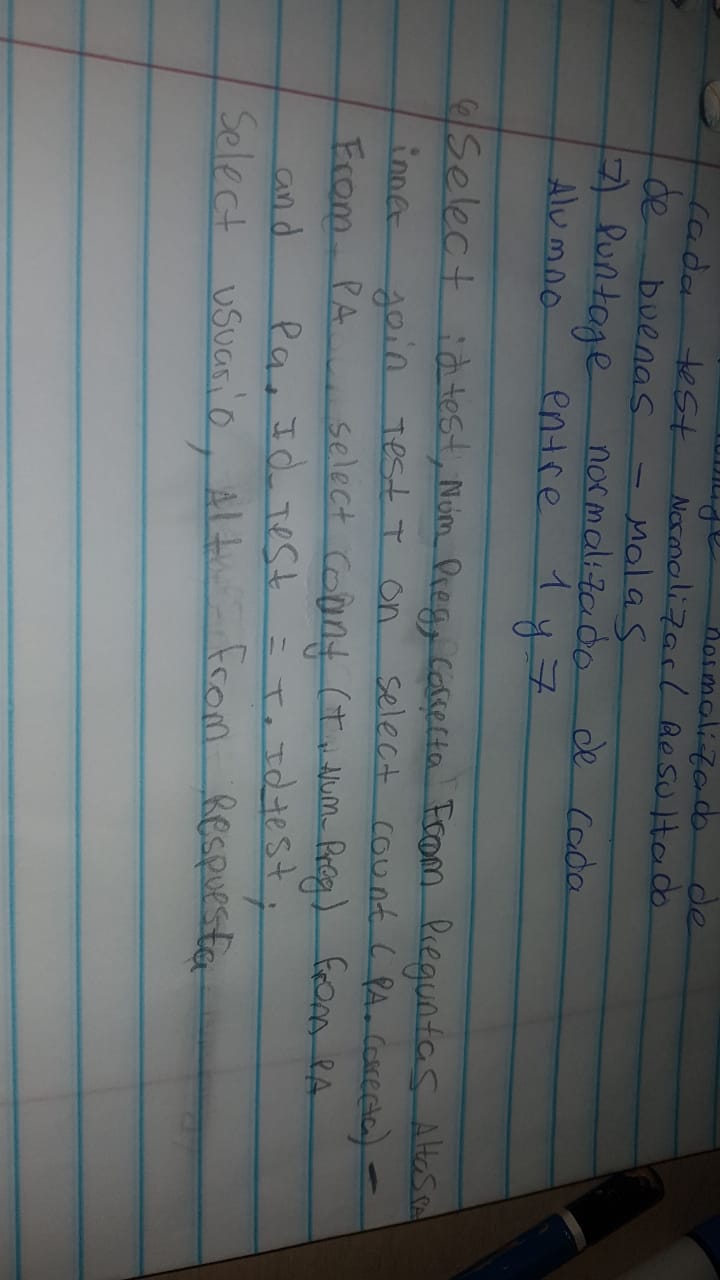 normalizado de
cada test Normalizar( Resultado
de buenas - Malas
7) Puntage normalizado de cada
Alumno entre 1 y 7
6) Select id test, Núm Preg, Correcta From Preguntas
inner join Test T on select count ( PA. Correcta) -
From PA select count (T. Num_Preg) From PA
and Pa. Id_Test = T. Id_test;
Select usuario, Alt From Respuesta